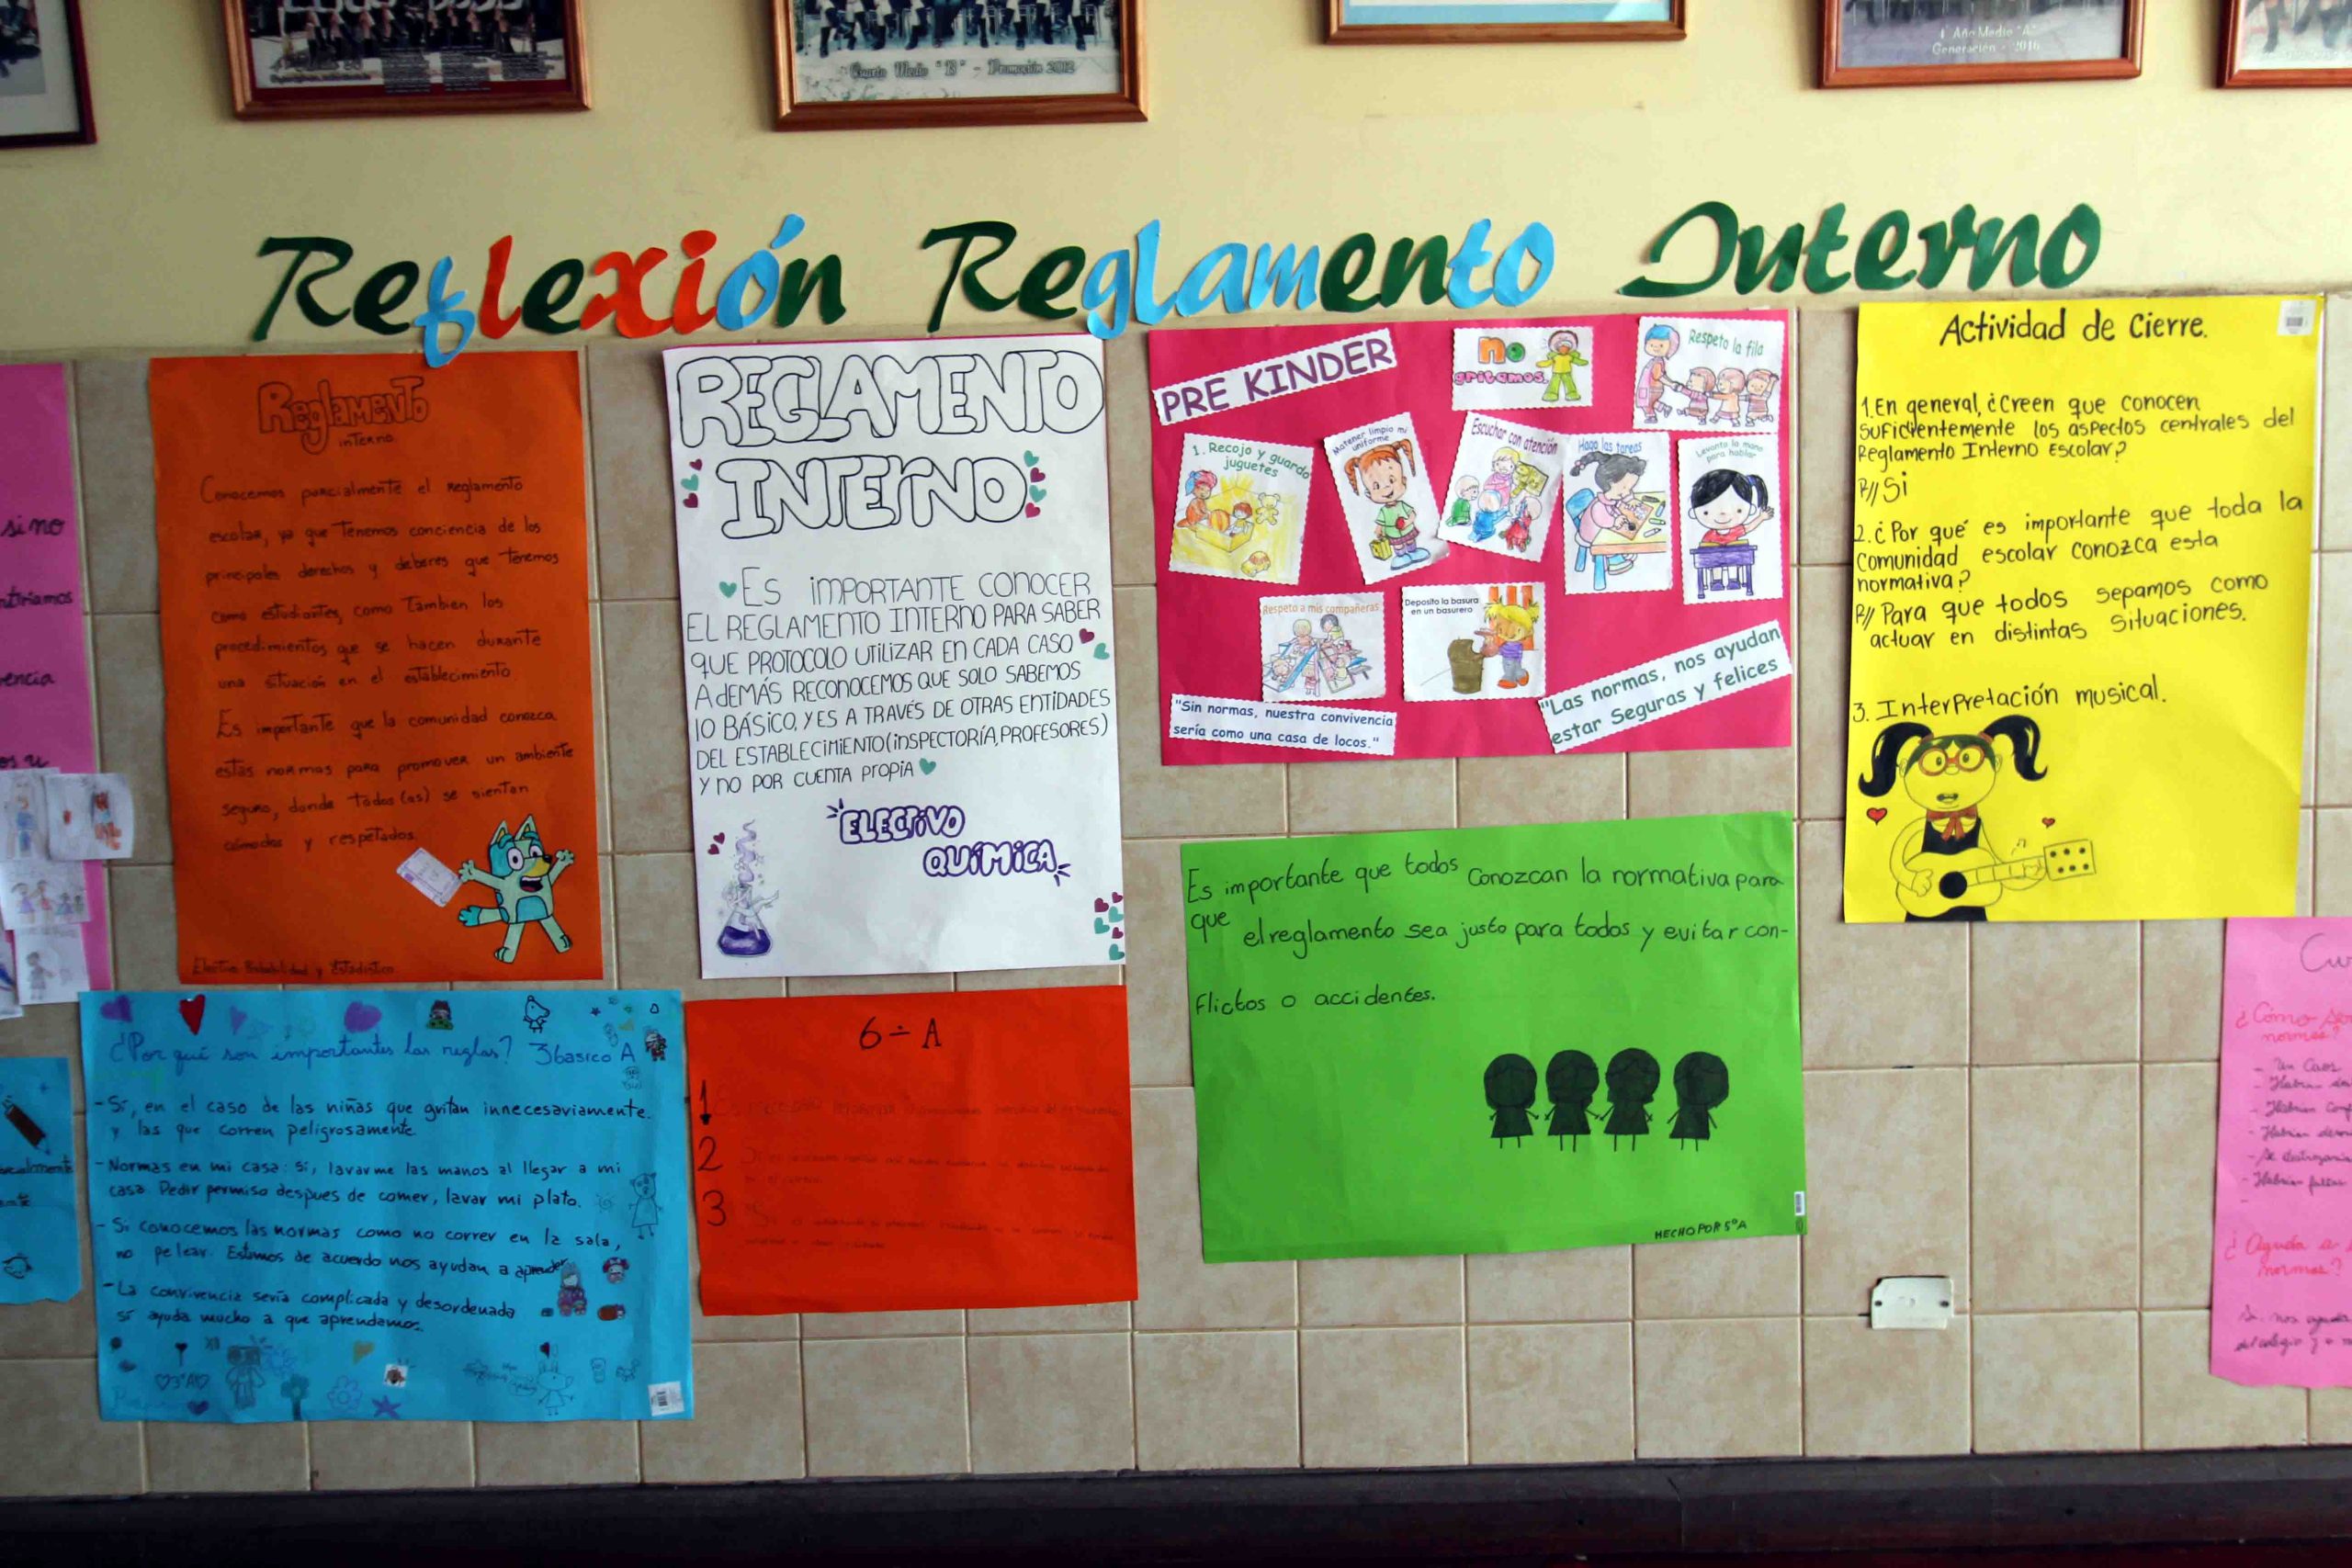 Cuarto Medio "B" - Promoción 2012
4° Año Medio "A"
Generación - 2016
Reflexión Reglamento Interno
Reglamento
interno
Conocemos parcialmente el reglamento
escolar, ya que tenemos conciencia de los
principales derechos y deberes que tenemos
como estudiantes, como tambien los
procedimientos que se hacen durante
una situación en el establecimiento
Es importante que la comunidad conozca
estas normas para promover un ambiente
seguro, donde todos(as) se sientan
cómodos y respetados.
Electivo Probabilidad y Estadística
REGLAMENTO
INTERNO
Es IMPORTANTE CONOCER
EL REGLAMENTO INTERNO PARA SABER
QUE PROTOCOLO UTILIZAR EN CADA CASO
ADEMÁS RECONOCEMOS QUE SOLO SABEMOS
LO BÁSICO, Y ES A TRAVÉS DE OTRAS ENTIDADES
DEL ESTABLECIMIENTO (INSPECTORÍA, PROFESORES)
Y NO POR CUENTA PROPIA
ELECTIVO
QUÍMICA
PRE KINDER
no
gritamos
Respeto la fila
1. Recojo y guardo
juguetes
Matener limpio mi
uniforme
Escuchar con atención
Hago las tareas
Levanto la mano
para hablar
Respeto a mis compañeras
Deposito la basura
en un basurero
"Sin normas, nuestra convivencia
sería como una casa de locos."
"Las normas, nos ayudan
estar Seguras y felices
Actividad de Cierre.
1. En general, ¿Creen que conocen
suficientemente los aspectos centrales del
Reglamento Interno Escolar?
R// Si
2. ¿Por qué es importante que toda la
Comunidad escolar conozca esta
normativa?
R// Para que todos sepamos como
actuar en distintas situaciones.
3. Interpretación musical.
¿Por qué son importantes las reglas? 3basico A
- Sí, en el caso de las niñas que gritan innecesariamente.
y las que corren peligrosamente.
- Normas en mi casa: si, lavarme las manos al llegar a mi
casa. Pedir permiso despues de comer, lavar mi plato.
- Si conocemos las normas como no correr en la sala,
no pelear. Estamos de acuerdo nos ayudan a aprender
- La convivencia sería complicada y desordenada
si ayuda mucho a que aprendamos.
3°A
6 ÷ A
1
2
3
Es importante que todos conozcan la normativa para
que el reglamento sea justo para todos y evitar con-
flictos o accidentes.
HECHO POR 5°A
si no
encia
¿Cómo
normas?
- Un Caos
¿Ayuda a
normas?